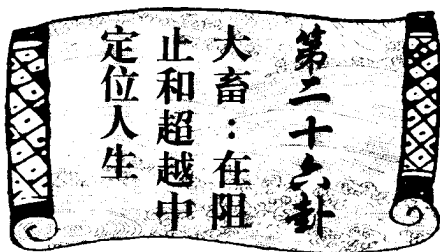 第二十六卦
大畜：在阻
止和超越中
定位人生